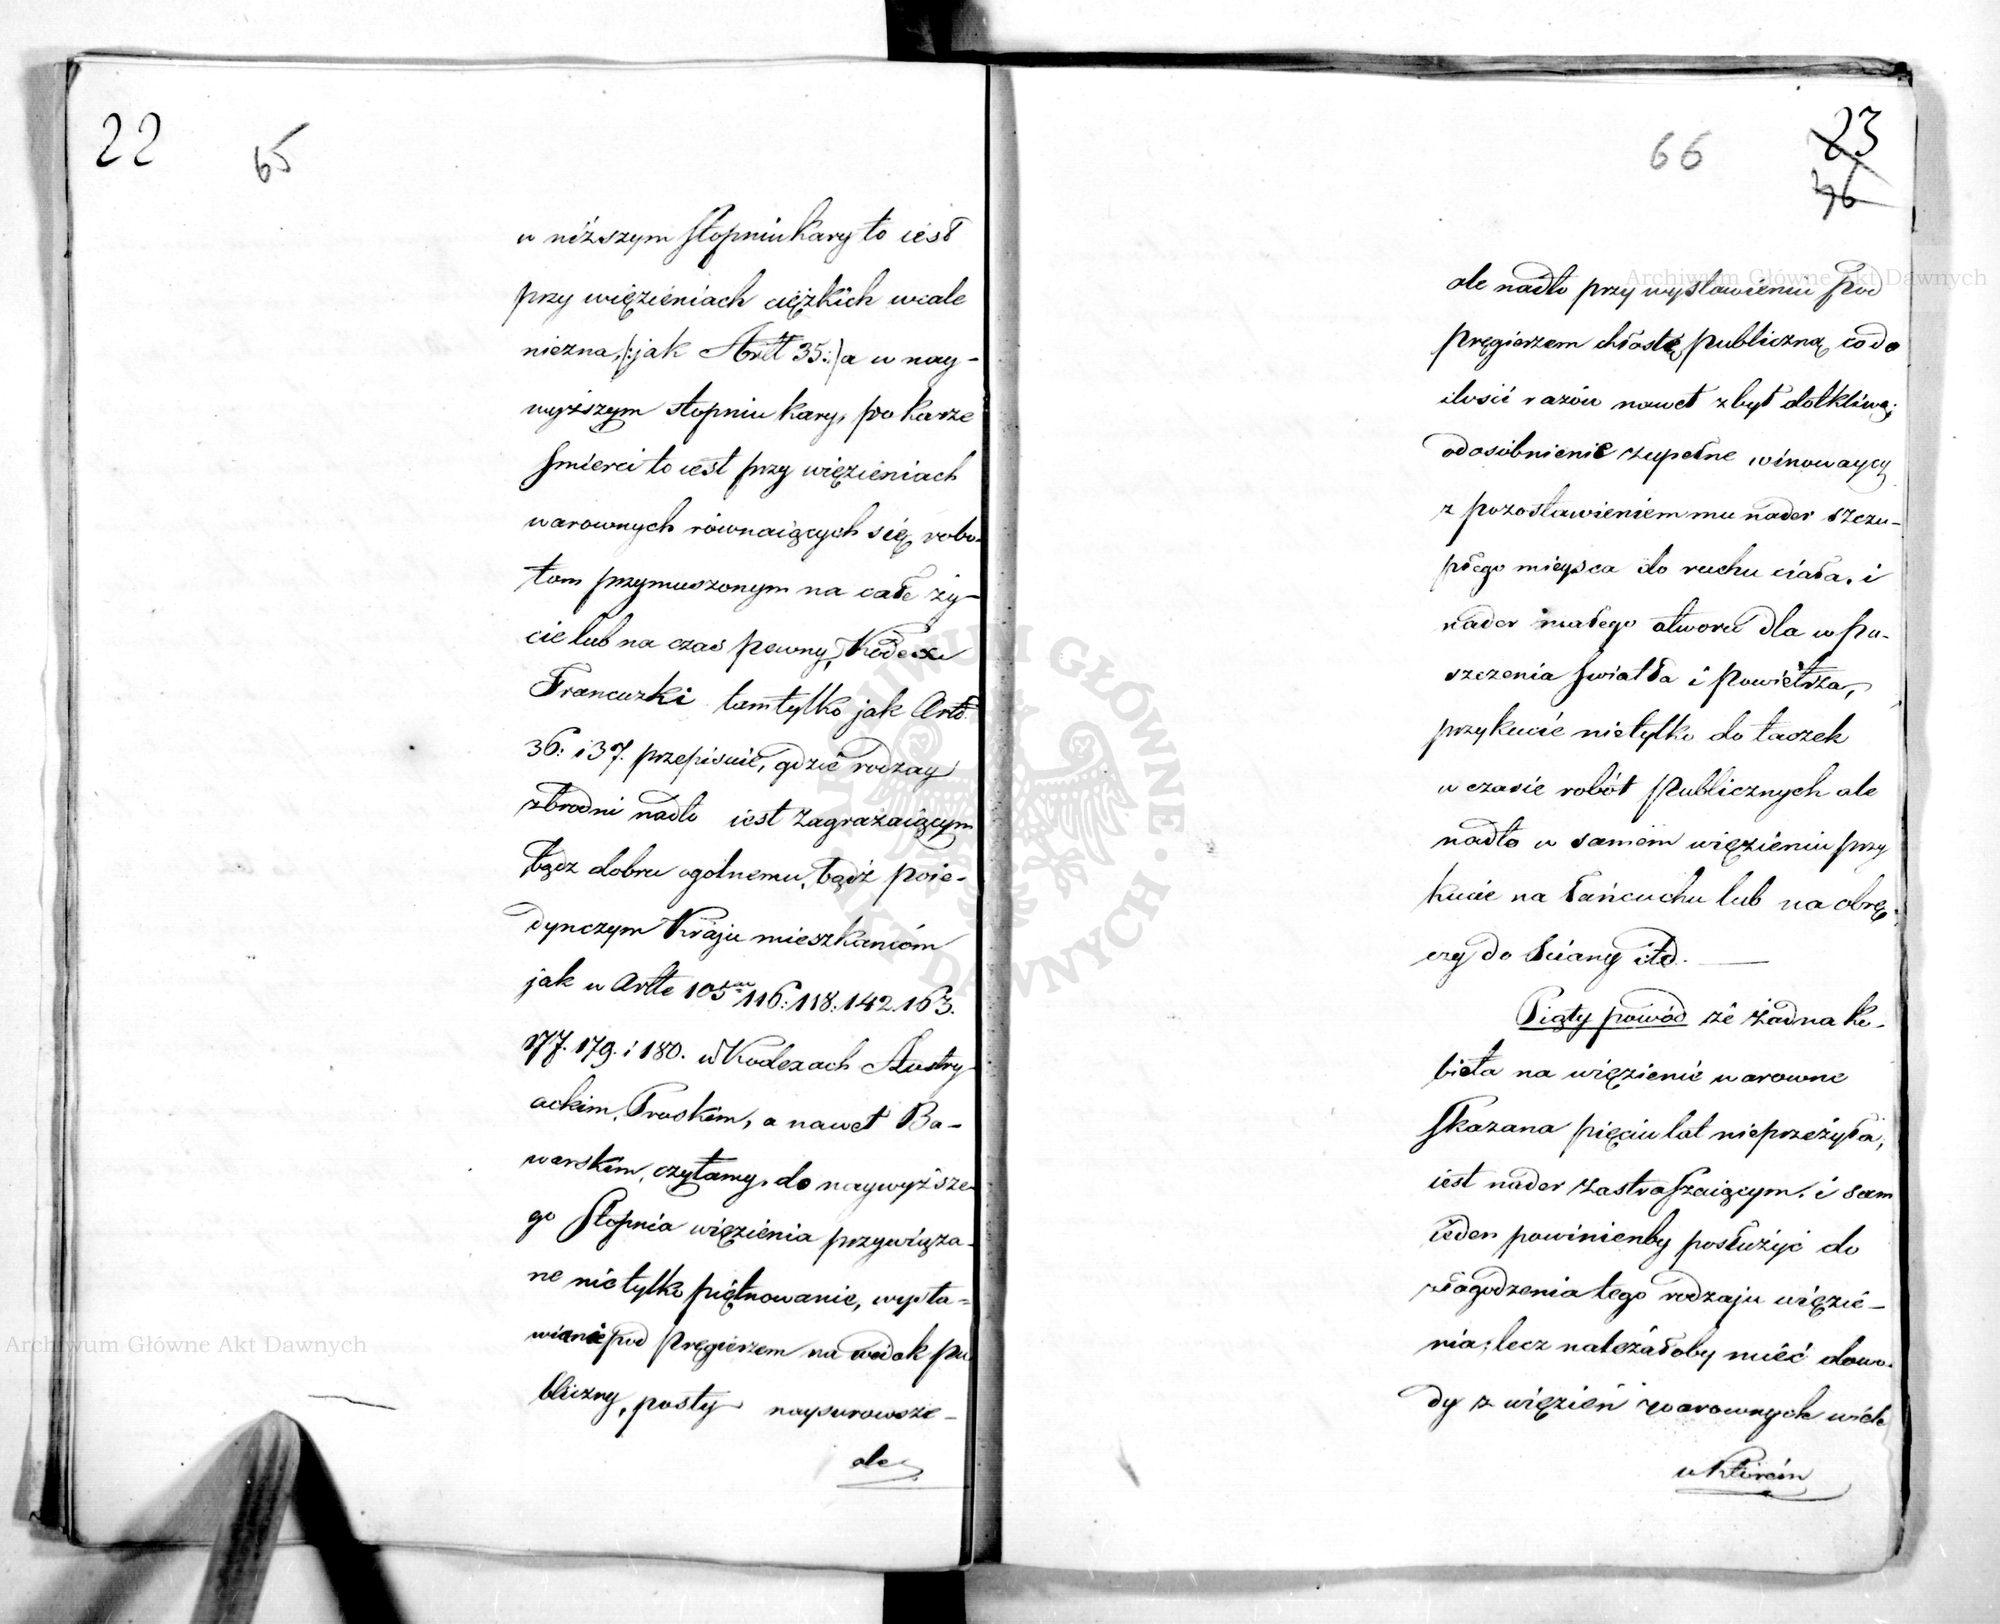 22
65
w niższym stopniu kary to iest
przy więzieniach ciężkich wcale
niezna, (:jak Artt 35:) a w nay-
wyższym stopniu kary, po karze
śmierci to iest przy więzieniach
warownych równaiących się robo-
tom przymuszonym na całe ży-
cie lub na czas pewny, Kodex
Francuzki tamtylko jak Artt.
36: i 37. przepisuie, gdzie rodzay
zbrodni nadto iest zagrażaiącym
bądz dobru ogolnemu, bądź poie-
dynczym Kraju mieszkańcóm
jak w Artle 105 116: 118: 142. 163.
177. 179. i 180. w Kodexach Austry-
ackim, Pruskim, a nawet Ba-
warskim, czytamy, do naywyższe-
go stopnia więzienia przywiąza-
ne nietylko piętnowanie, wysta-
wianie pod pręgierzem na widok pu
bliczny, posty naysurowsze-
ale
66
23
36
ale nadto przy wystawieniu pod
pręgierzem chłostę publiczną, co do
ilości razów nawet zbyt dotkliwą;
odosóbnienie zupełne winowaycy
z pozostawieniem mu nader szczu-
płego mieysca do ruchu ciała, i
nader małego otworu dla wpu-
szczenia światła i powietrza,
przykucie nietylko do taczek
w czasie robót publicznych ale
nadto w samem więzieniu przy
kucie na łańcuchu lub na obrę-
czy do ściany itd. —
Piąty powód że żadna ko-
bieta na więzienie warowne
skazana pięciu lat nieprzeżyła,
iest nader zastraszaiącym, i sam
ieden powinienby posłużyć do
złagodzenia tego rodzaju więzie-
nia; lecz należałoby mieć dowo-
dy z więzień warownych wiele
w którém
Archiwum Główne Akt Dawnych
Archiwum Główne Akt Dawnych
ARCHIWUM GŁÓWNE · AKT DAWNYCH ·